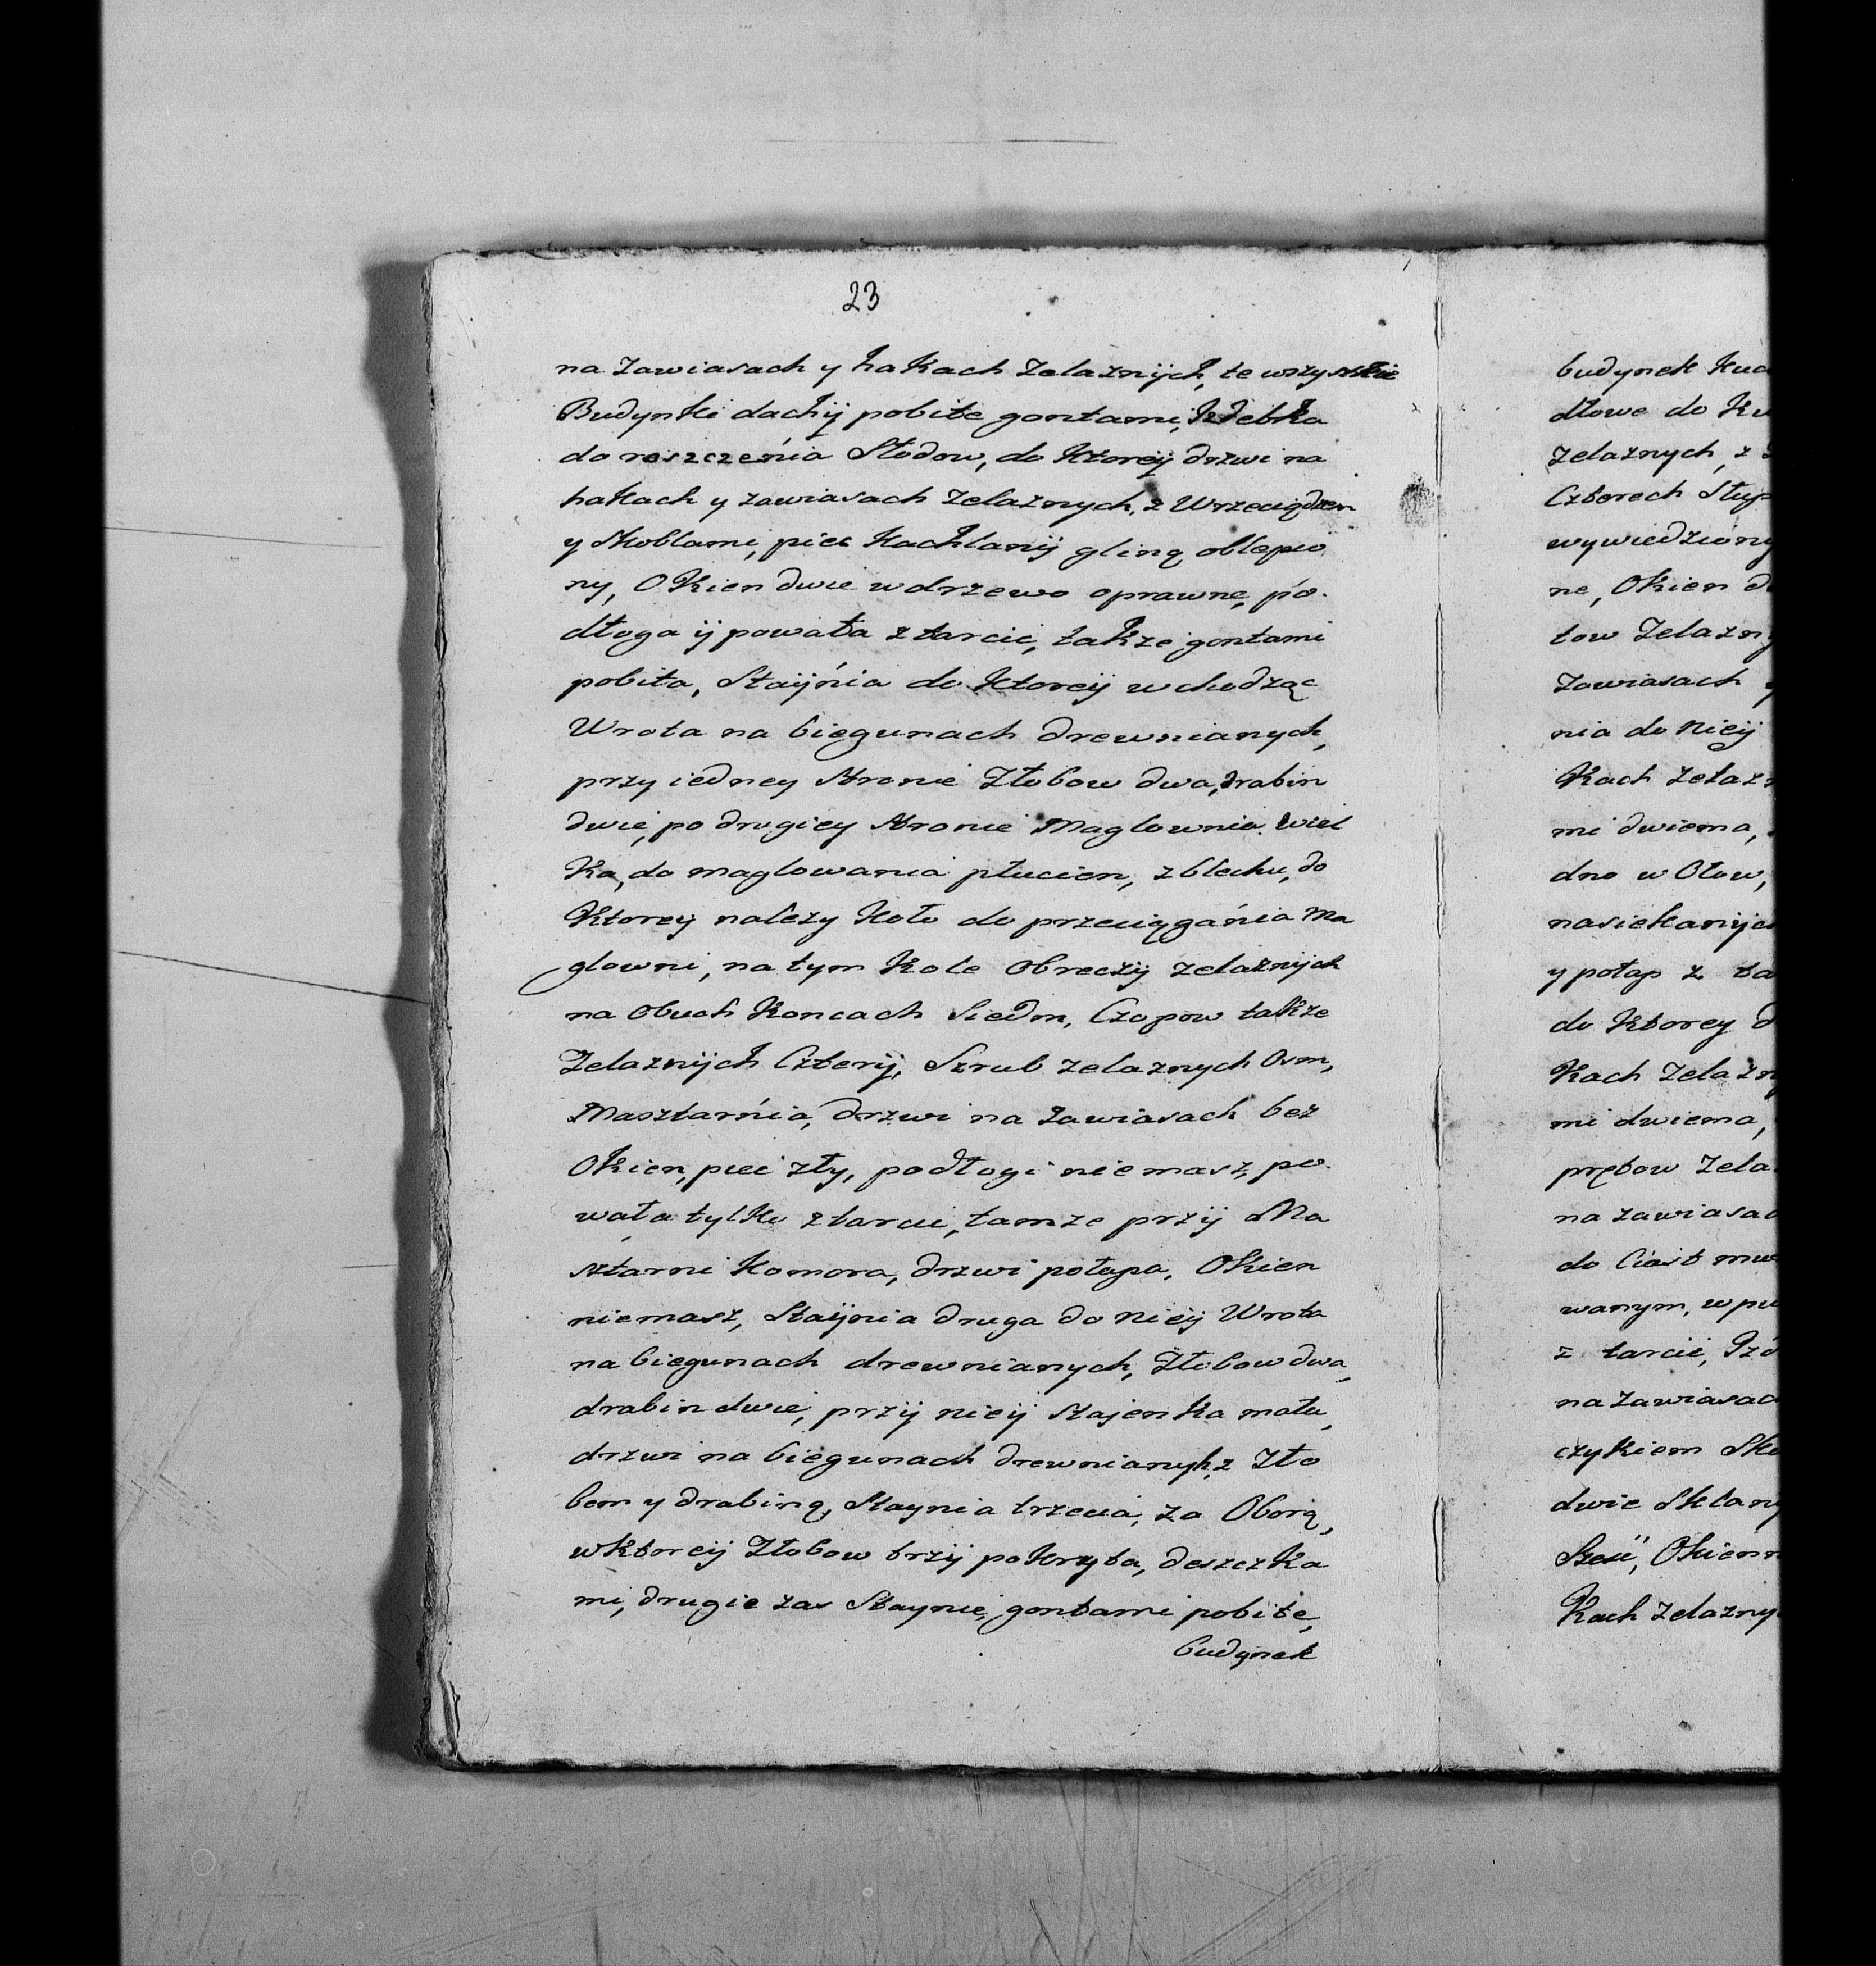 23
na Zawiasach y hakach Zelaznijch, te wszystkie
Budynki dachij pobite gontami, Izdebka
do roszczenia Słodow, do Ktoreij drzwi na
hakach y zawiasach Zelaznych, z Wrzeciądzem
y Skoblami, piec Kachlanij gliną oblepio
ny, Okien dwie w drzewo oprawne, po.
dłoga ij powała z tarcic, także gontami
pobita, Staijnia do Ktoreij wchodząc
Wrota na biegunach drewnianych,
przy iedney Stronie Złobow dwa, drabin
dwie, po drugiey Stronie Maglownia Wiel
Ka, do maglowania płucien, z blechu, do
Ktorey nalezy Koło do przeciągania Ma
glowni, na tym Kole Obreczij zelaznijch
na Obuch Koncach Siedm, Czopow także
Zelaznijch Czterij, Szrub zelaznych Osm,
Masztarnia, drzwi na Zawiasach bez
Okien, piec zły, podłogi niemasz, po.
wała tylko z tarcic, tamze przij Ma
sztarni Komora, drzwi połapa, Okien
niemasz, Staijnia druga do nieij Wrota
na biegunach drewnianych, Złobow dwa,
drabin dwie, przij nieij Stajenka mała,
drzwi na biegunach drewnianych, z Zło
bem y drabiną, Staynia trzecia, za Oborą,
w Ktoreij Złobow trzij pokryta, deszczka
mi, drugie zas Staynie, gontami pobite,
budynek
budynek Kuc
dłowe do Ku
Zelaznych, z
Czterech Słup
wywiedziony
ne, Okien d
tow Zelazny
Zawiasach y
nia do nieij
Kach zelazn
mi dwiema,
dno w Ołow,
nasiekanijch
y połap z ta
do Ktorey d
Kach Zelazny
mi dwiema,
prętow Zela
na zawiasac
do Ciast mu
wanym, w pu
z tarcic,
na Zawiasac
czykiem Sko
dwie Sklany
Szesć, Okienn
Kach Zelazny